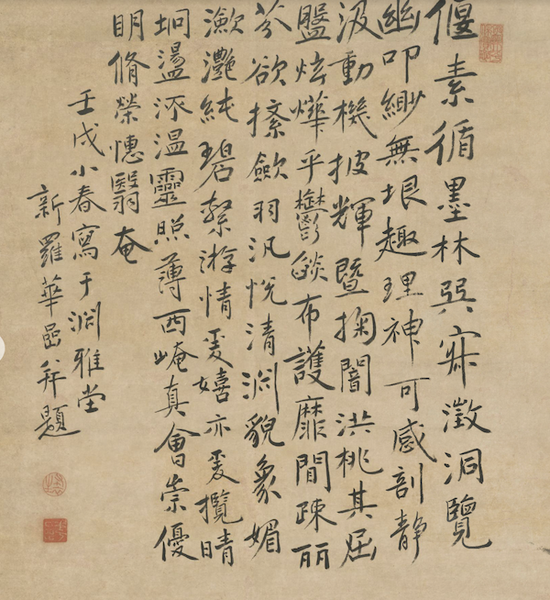 偃素循墨林巽寂澂洞覽
幽叩緲無垠趣理神可感剖靜
汲動機披輝暨掬闇洪桃其屈
盤炫燁乎鬱燄布護靡間疎丽
芬欲揉歛羽汎悅清淵貌象媚
瀲灧純碧縏游情爰嬉亦爰攬晴
坰盪溫靈照薄西崦真會崇優
明脩榮憓翳奄
壬戌小春寫于淵雅堂
新羅華喦并題